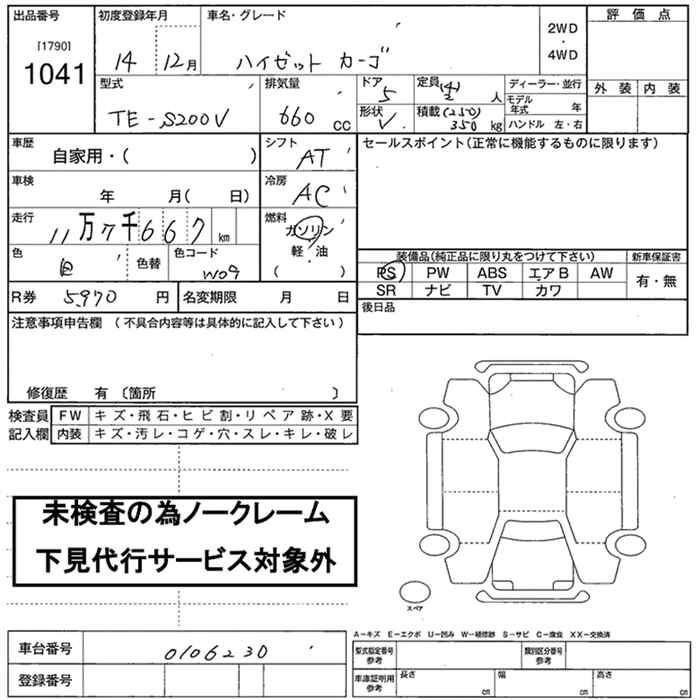 出品番号 初度登録年月 車名・グレード 評価点
[1790]
1041
14年 12月 ハイゼット カーゴ
2WD
・
4WD
外装 内装
型式 排気量 ドア 定員 ディーラー・並行
TE-S200V 660 cc 5 (4) 2 人
モデル年式 年
形状 積載 (250)
V 350 kg ハンドル 左・右
車歴 シフト セールスポイント(正常に機能するものに限ります)
自家用・( ) AT
車検 冷房
年 月( 日) AC
走行 燃料
11万7千667 km ガソリン
軽・油
・
( )
色 色替 色コード
白 W09
装備品(純正品に限り丸をつけて下さい) 新車保証書
PS PW ABS エアB AW 有・無
SR ナビ TV カワ
R券 5,970 円 名変期限 月 日
後日品
注意事項申告欄 (不具合内容等は具体的に記入して下さい)
修復歴 有 〔箇所 〕
検査員 FW キズ・飛石・ヒビ割・リペア跡・X要
記入欄 内装 キズ・汚レ・コゲ・穴・スレ・キレ・破レ
未検査の為ノークレーム
下見代行サービス対象外
スペア
A-キズ E-エクボ U-凹み W-補修跡 S-サビ C-腐食 XX-交換済
車台番号 0106230
型式指定番号 参考 類別区分番号 参考
登録番号
車庫証明用 参考 長さ cm 幅 cm 高さ cm